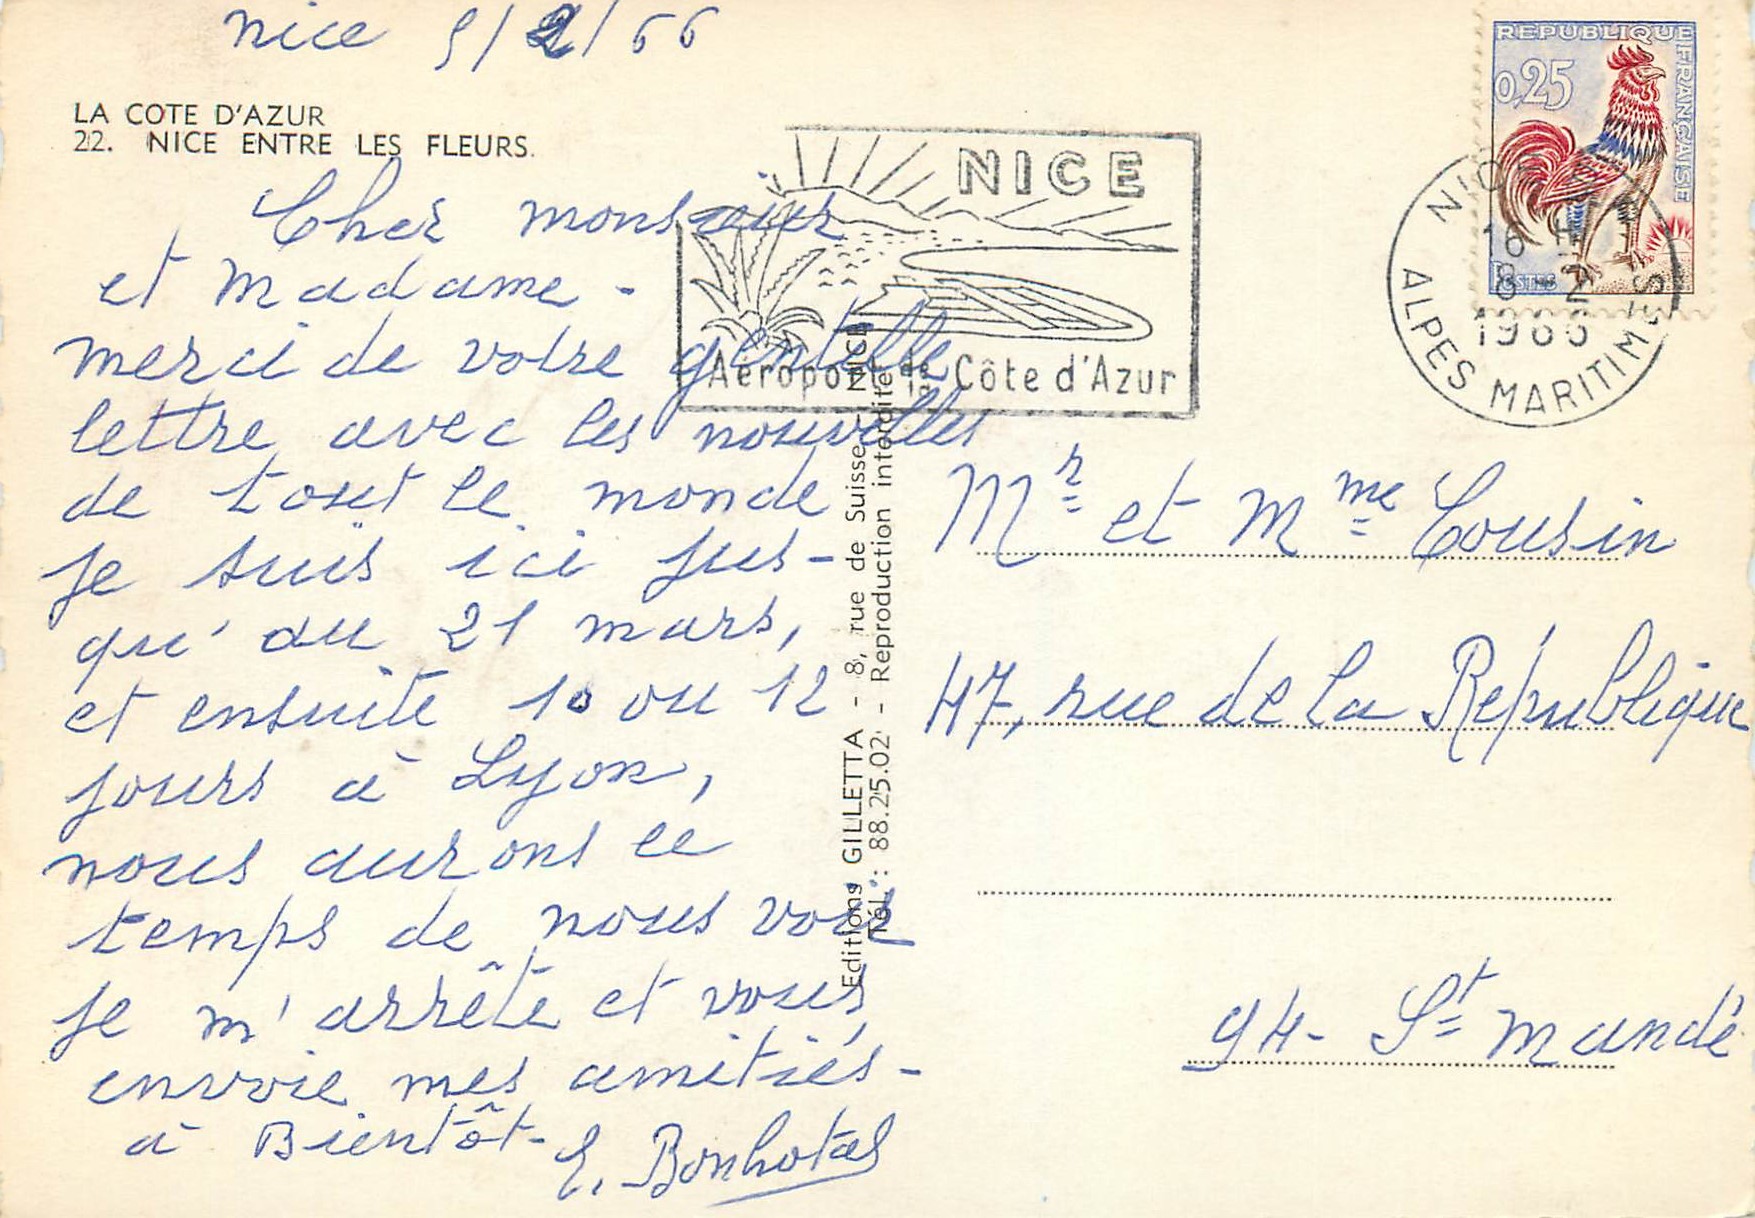 Nice 5/2/66
LA COTE D'AZUR
22. NICE ENTRE LES FLEURS.
Cher monsieur
et Madame -
merci de votre gentille
lettre avec les nouvelles
de tout le monde
je suis ici jus-
qu'au 21 mars,
et ensuite 10 ou 12
jours à Lyon,
nous aurons le
temps de nous voir
je m'arrête et vous
envoie mes amitiés -
à Bientôt -
Editions GILLETTA - 8, rue de Suisse - NICE
Tél. : 88.25.02 - Reproduction interdite
NICE
Aéroport de la Côte d'Azur
REPUBLIQUE FRANÇAISE
0,25
POSTES
NICE
16 H
8 - 2
1966
ALPES MARITIMES
Mr et Mme Cousin
47, rue de la République
94 - St Mandé